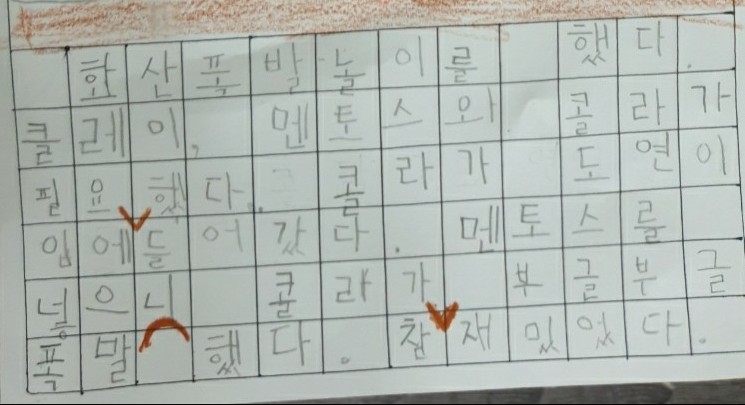 화산폭발놀이를 했다.
클레이, 멘토스와 콜라가
필요했다. 콜라가 도연이
입에들어갔다. 멘토스를
넣으니 콜라가 부글부글
폭말 했다. 참재있었다.